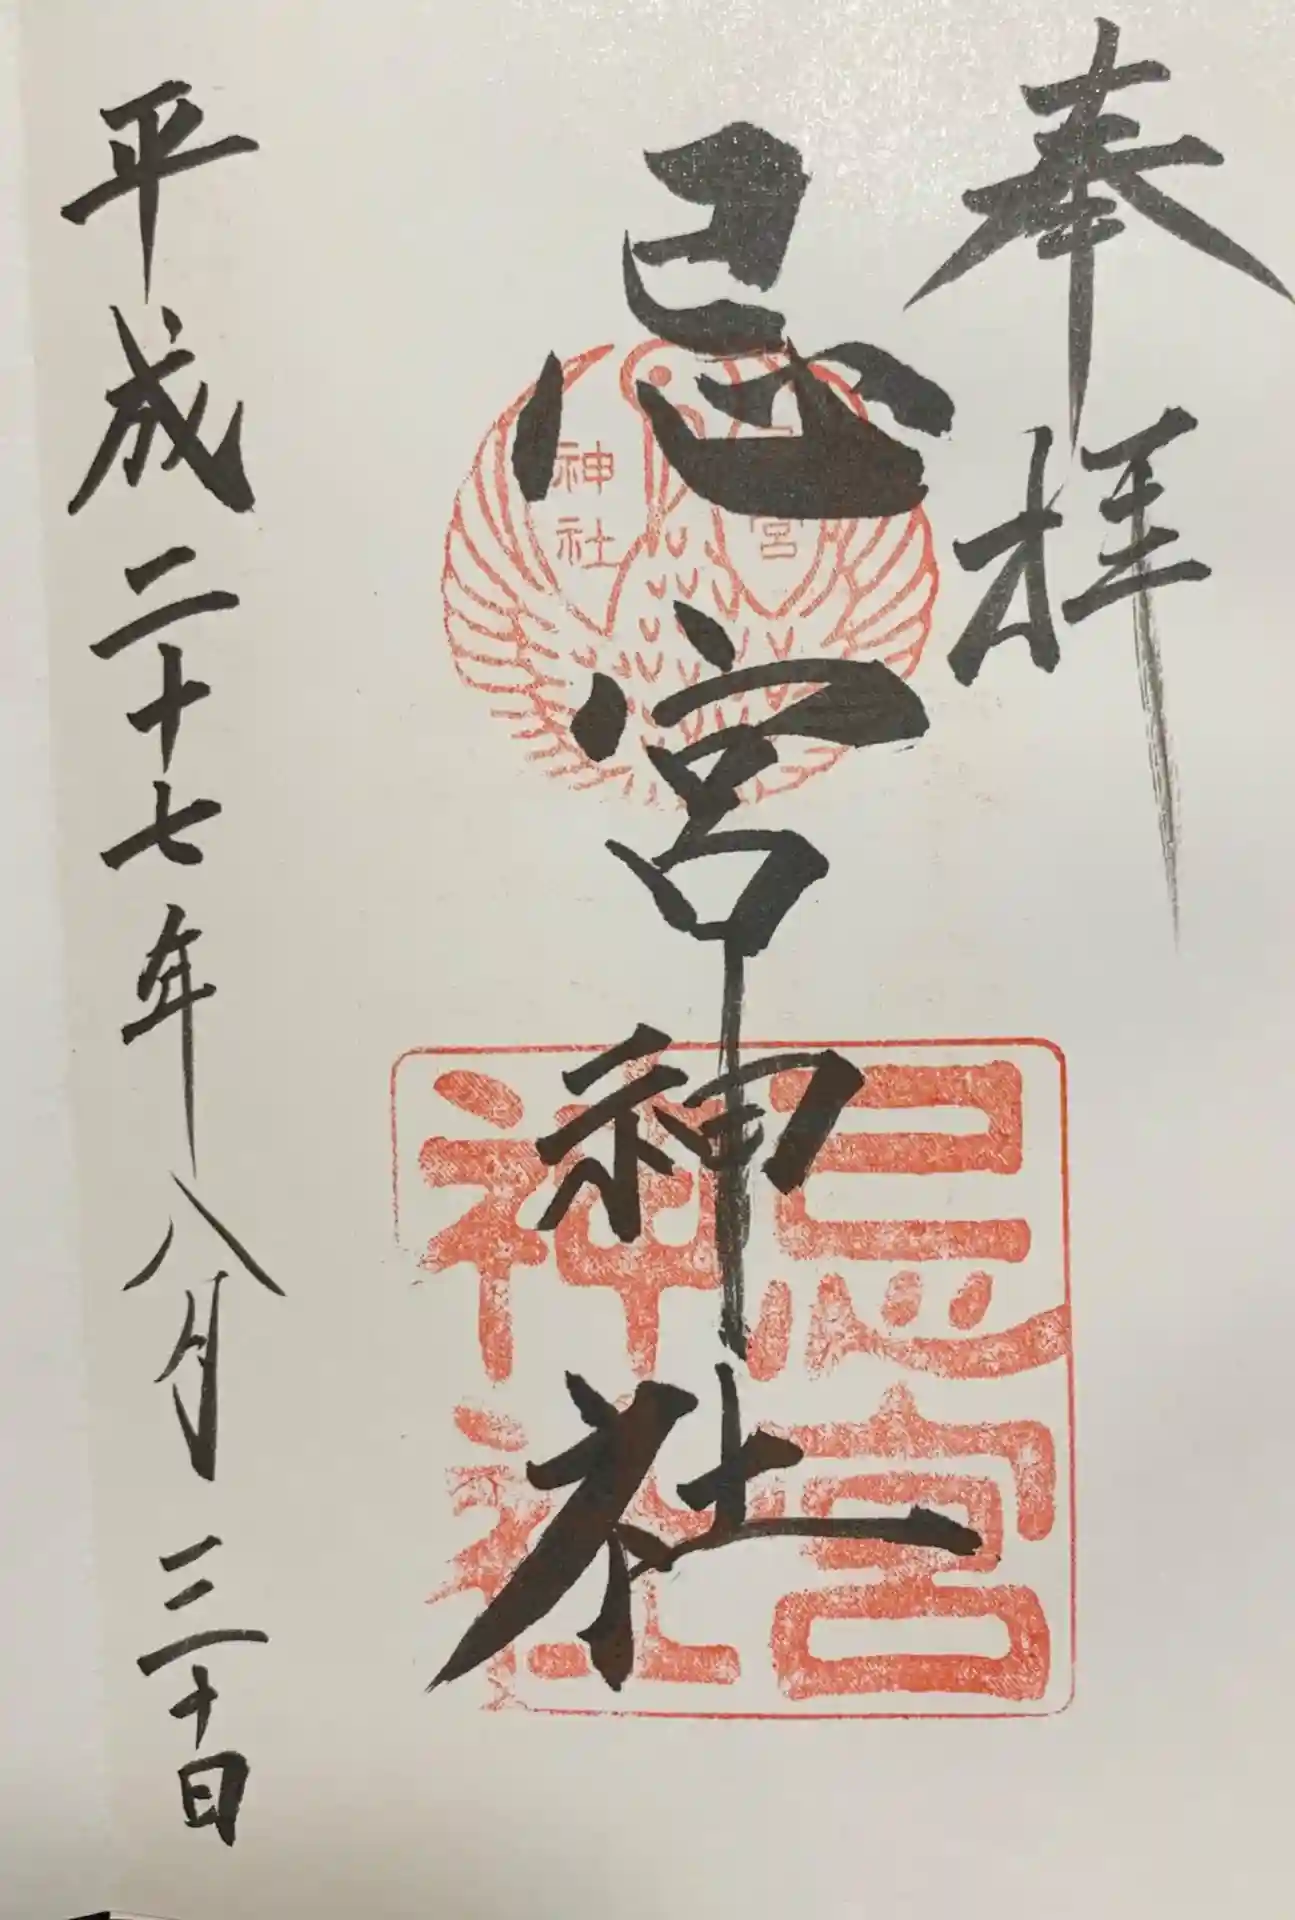 奉拝
忌宮神社
平成二十七年八月三十日
宮
神社
忌宮
神社